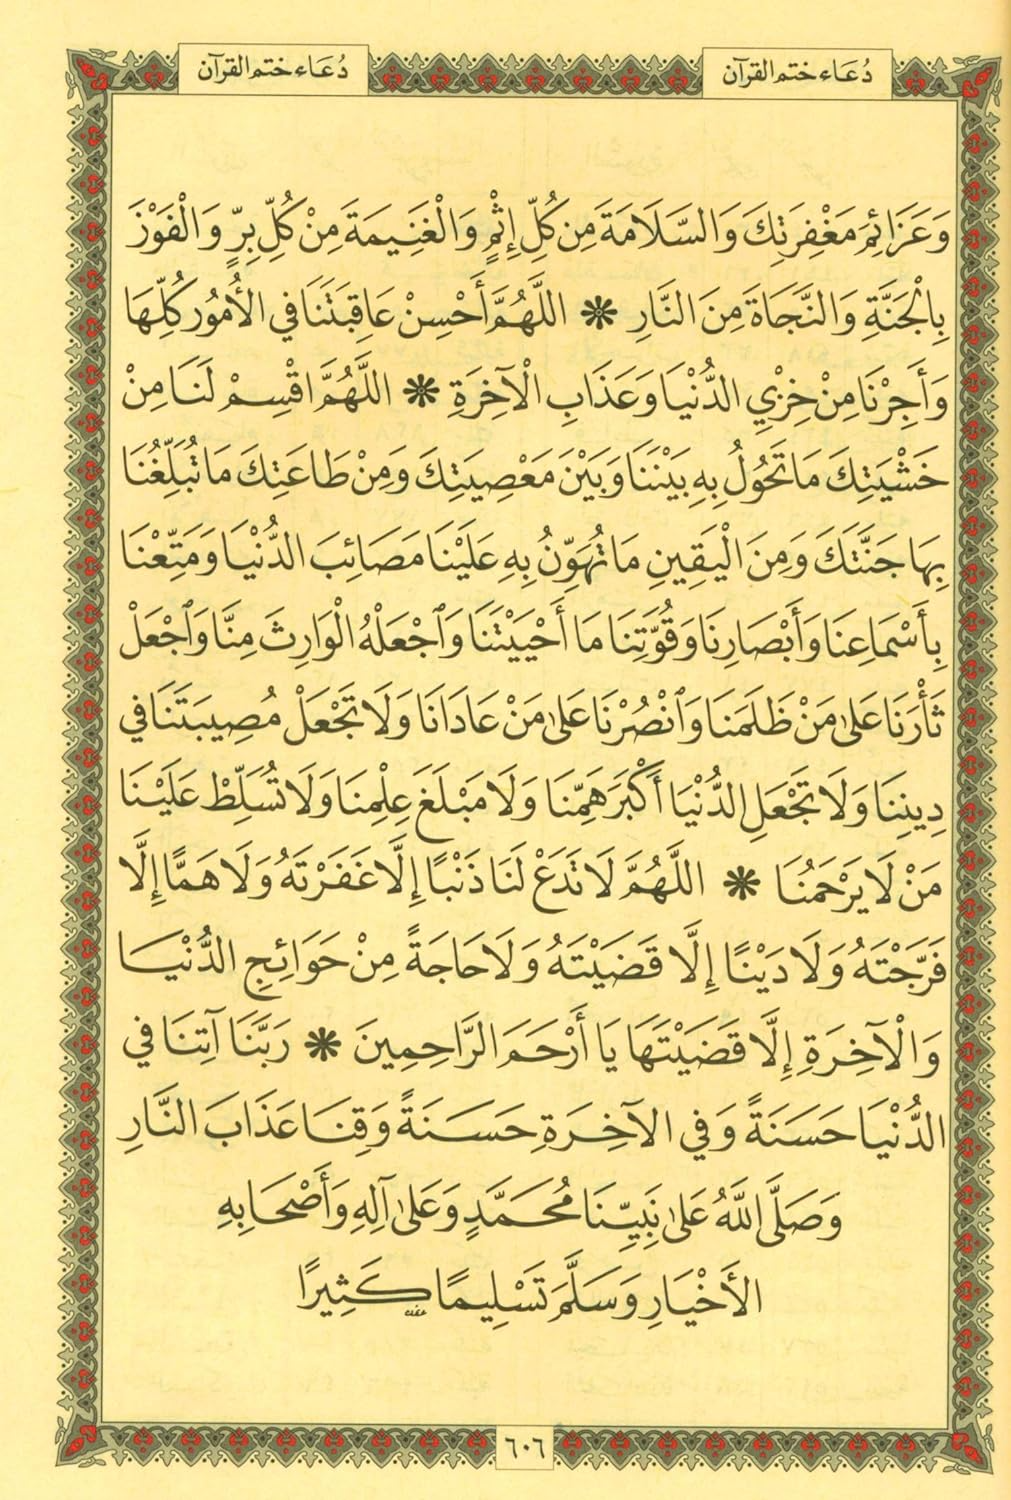 دُعَاء ختم القرآن
دُعَاء ختم القرآن
وَعَزَائِمَ مَغْفِرَتِكَ وَالسَّلَامَةَ مِن كُلِّ إِثْمٍ وَالْغَنِيمَةَ مِنْ كُلِّ بِرٍّ وَالْفَوْزَ
بِالْجَنَّةِ وَالنَّجَاةَ مِنَ النَّارِ ❋ اللَّهُمَّ أَحْسِنْ عَاقِبَتَنَا فِي الْأُمُورِ كُلِّهَا
وَأَجِرْنَا مِنْ خِزْيِ الدُّنْيَا وَعَذَابِ الْآخِرَةِ ❋ اللَّهُمَّ اقْسِمْ لَنَا مِنْ
خَشْيَتِكَ مَا تَحُولُ بِهِ بَيْنَنَا وَبَيْنَ مَعْصِيَتِكَ وَمِنْ طَاعَتِكَ مَا تُبَلِّغُنَا
بِهَا جَنَّتَكَ وَمِنَ الْيَقِينِ مَا تُهَوِّنُ بِهِ عَلَيْنَا مَصَائِبَ الدُّنْيَا وَمَتِّعْنَا
بِأَسْمَاعِنَا وَأَبْصَارِنَا وَقُوَّتِنَا مَا أَحْيَيْتَنَا وَٱجْعَلْهُ الْوَارِثَ مِنَّا وَٱجْعَلْ
ثَأْرَنَا عَلَىٰ مَنْ ظَلَمَنَا وَٱنْصُرْنَا عَلَىٰ مَنْ عَادَانَا وَلَا تَجْعَلْ مُصِيبَتَنَا فِي
دِينِنَا وَلَا تَجْعَلِ الدُّنْيَا أَكْبَرَ هَمِّنَا وَلَا مَبْلَغَ عِلْمِنَا وَلَا تُسَلِّطْ عَلَيْنَا
مَنْ لَا يَرْحَمُنَا ❋ اللَّهُمَّ لَا تَدَعْ لَنَا ذَنْبًا إِلَّا غَفَرْتَهُ وَلَا هَمًّا إِلَّا
فَرَّجْتَهُ وَلَا دَيْنًا إِلَّا قَضَيْتَهُ وَلَا حَاجَةً مِنْ حَوَائِجِ الدُّنْيَا
وَالْآخِرَةِ إِلَّا قَضَيْتَهَا يَا أَرْحَمَ الرَّاحِمِينَ ❋ رَبَّنَا آتِنَا فِي
الدُّنْيَا حَسَنَةً وَفِي الْآخِرَةِ حَسَنَةً وَقِنَا عَذَابَ النَّارِ
وَصَلَّى اللَّهُ عَلَىٰ نَبِيِّنَا مُحَمَّدٍ وَعَلَىٰ آلِهِ وَأَصْحَابِهِ
الْأَخْيَارِ وَسَلَّمَ تَسْلِيمًا كَثِيرًا
٦٠٦